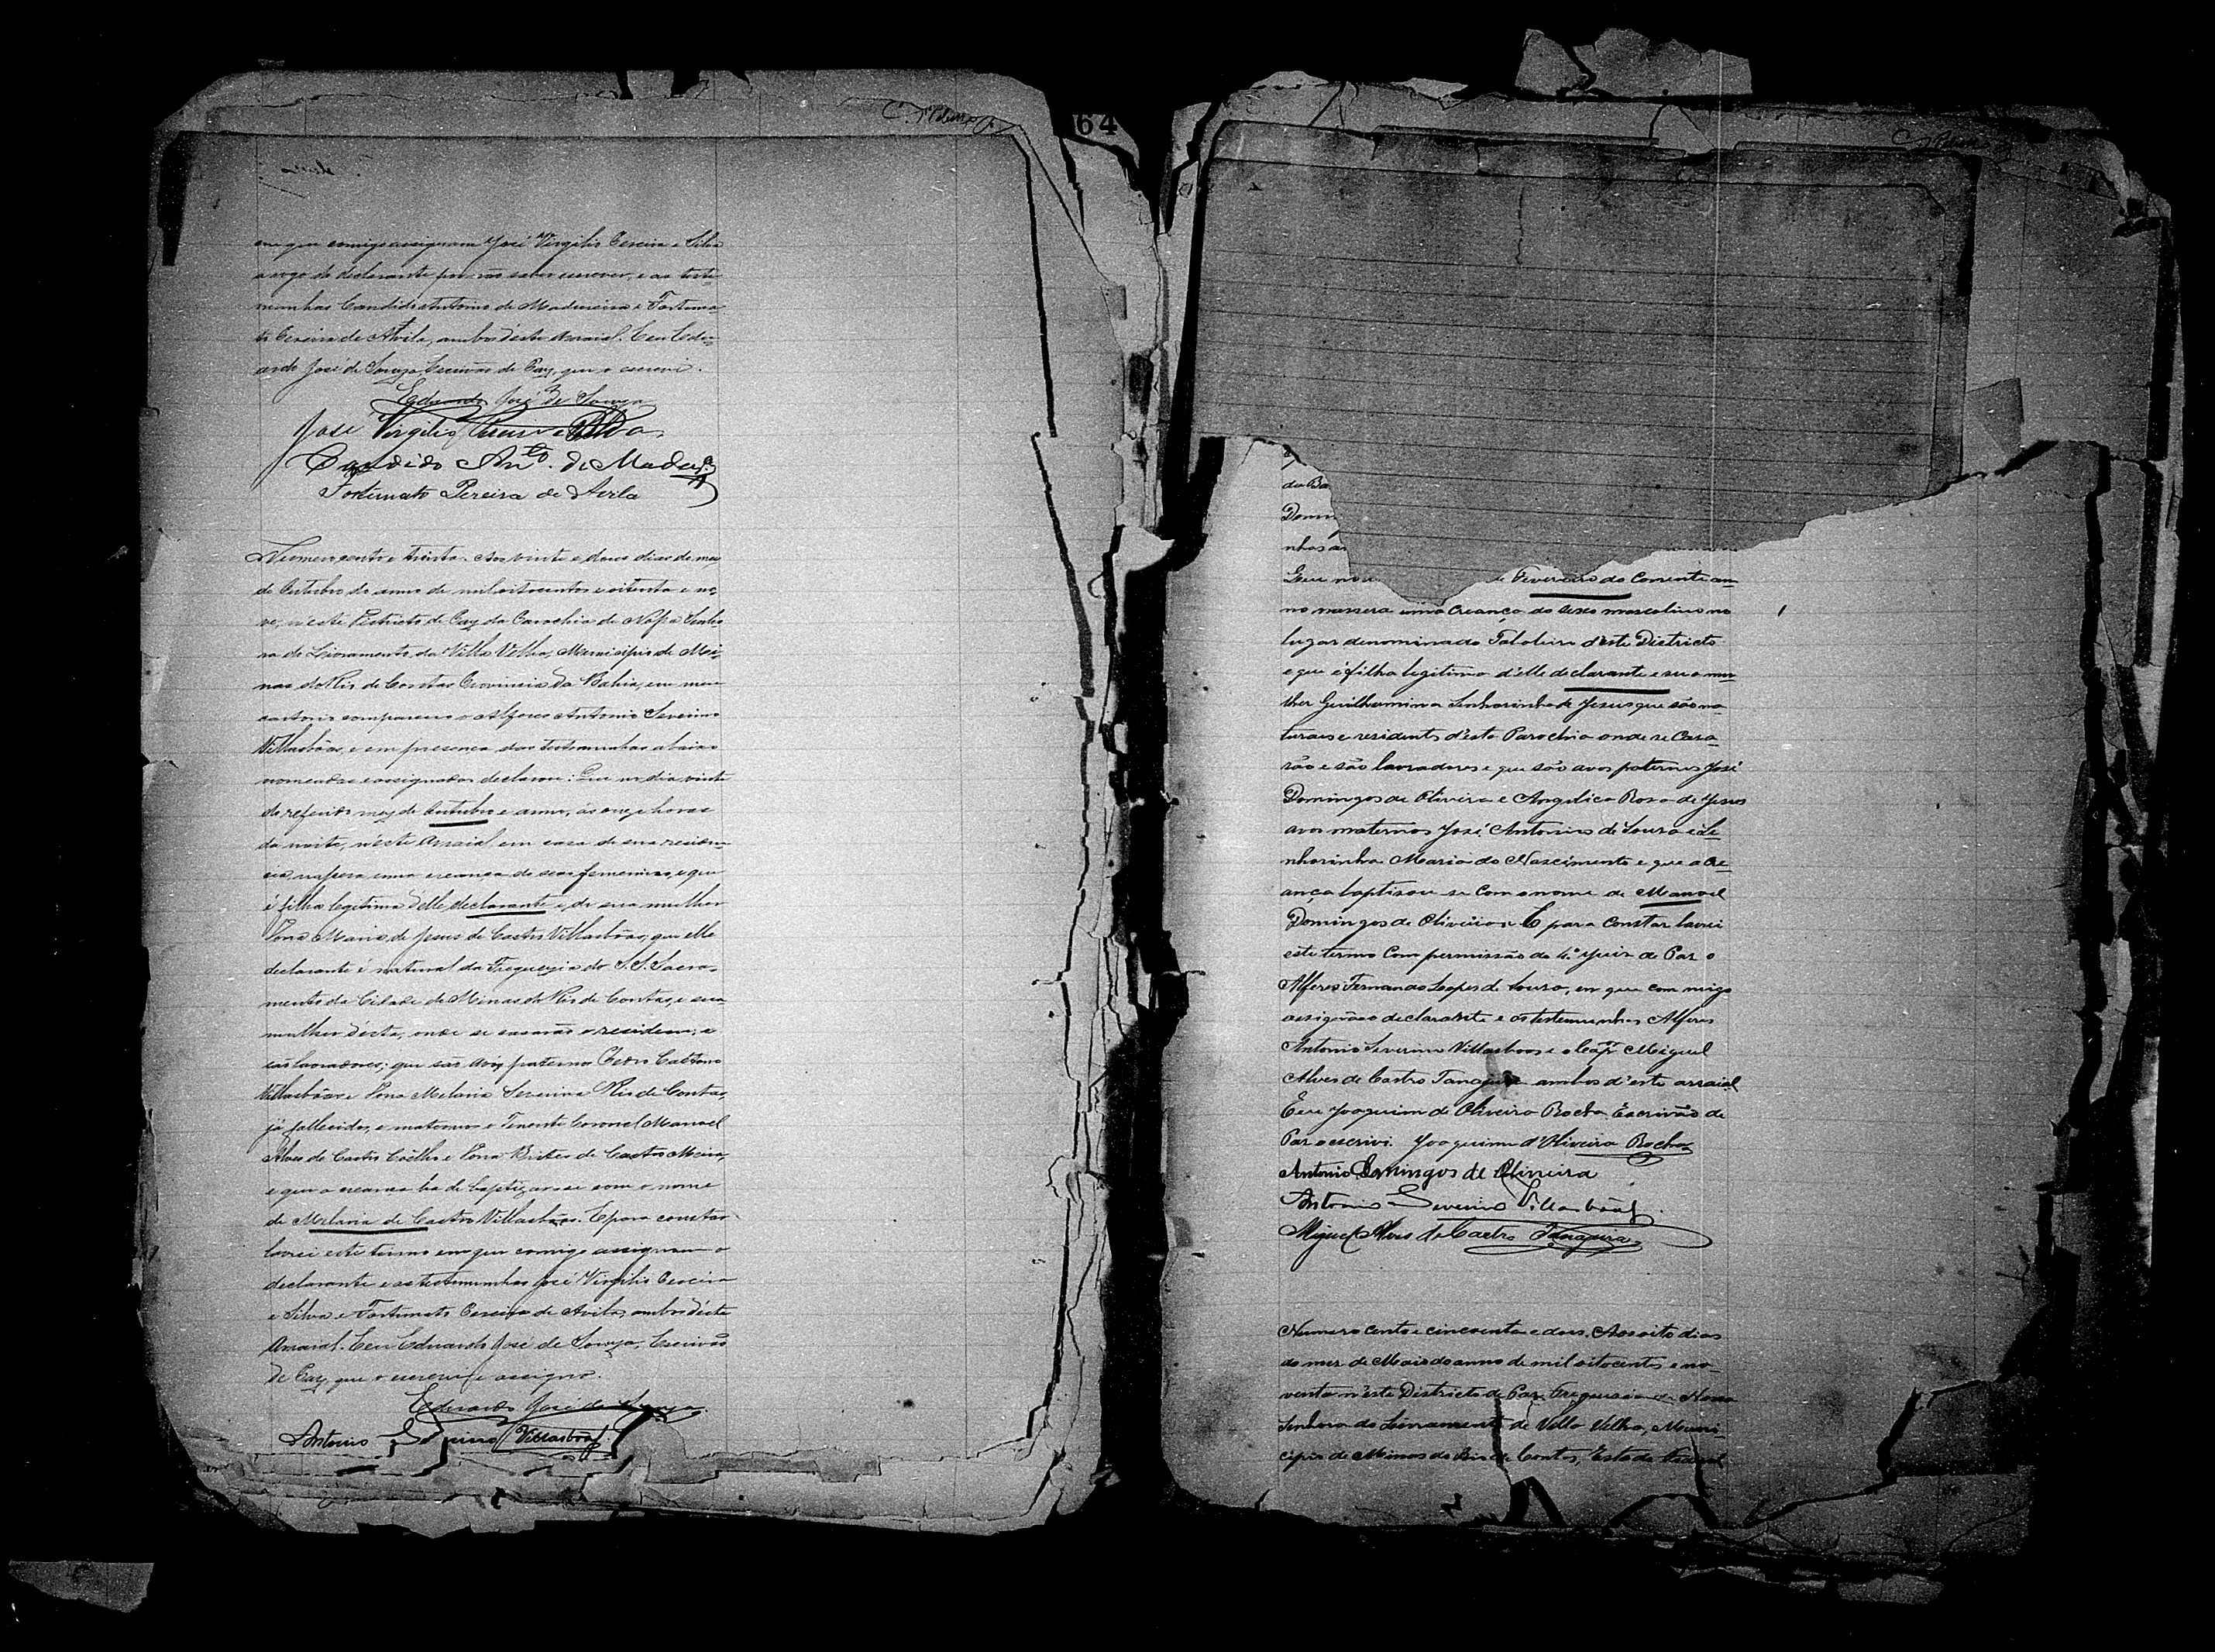 64
em que comigo assignam José Virgilio Pereira e Silva
a rogo do declarante por não saber escrever, e as teste-
munhas Candido Antonio de Madureira e Fortuna-
to Pereira de Avila, ambos d'este Arraial. Eu Edu-
ardo José de Souza, Escrivão de Paz, que o escrevi.
Eduardo José de Souza
José Virgilio Pereira e Silva
Candido Anto. de Madra.
Fortunato Pereira de Avila
Numero cento e trinta. Aos vinte e dous dias do mez
de Outubro do anno de mil oitocentos e oitenta e no-
ve, n'este Districto de Paz da Parochia de Nossa Senho-
ra do Livramento da Villa Velha, Municipio de Mi-
nas do Rio de Contas Provincia da Bahia, em meu
cartorio compareceu o Alferes Antonio Severino
Villasbôas, e em presença das testemunhas abaixo
nomeadas e assignadas declarou: Que no dia vinte
do referido mez de Outubro e anno, ás onze horas
da noite, n'este Arraial em casa de sua residen-
cia, nasceu uma creança de sexo femenino, e que
é filha legitima d'elle declarante e de sua mulher
Dona Maria de Jesus de Castro Villasbôas; que elle
declarante é natural da Freguezia do S. S. Sacra-
mento da Cidade de Minas do Rio de Contas, e sua
mulher d'esta, onde se casarão e residem, e
são lavradores; que são avós paternos Pedro Caetano
Villasbôas e Dona Melania Severina Rio de Contas,
já fallecidos, e maternos o Tenente Coronel Manoel
Alves de Castro Coêlho e Dona Brites de Castro Meira,
e que a creança ha de baptizar-se com o nome
de Melania de Castro Villasbôas. E para constar
lavrei este termo em que comigo assignam o
declarante e as testemunhas José Virgilio Pereira
e Silva e Fortunato Pereira de Avila, ambos d'este
Arraial. Eu Eduardo José de Souza, Escrivão
de Paz, que o escrevi e assigno.
Eduardo José de Souza
Antonio Severino Villasbôas
da Ba
Domin
nhas a
Que no e Fevereiro do Corrente an-
no nassera uma Creança do sexo mascolino no
lugar denominado Taboleiro d'este Districto
e que é filho legitimo d'elle declarante e sua mu-
lher Guilhermina Senhorinha de Jesus que são na-
turaes e residents d'esta Parochia onde se Casa-
rão e são lavradores e que são avos paternos José
Domingos de Oliveira e Angelica Rosa de Jesus
avos maternos José Antonio de Souza e Se-
nhorinha Maria do Nascimento e que a Cre-
ança baptisou-se Com o nome de Manoel
Domingos de Oliveira E para Constar lavrei
este termo Com permissão do 4º Juiz de Paz o
Alferes Fernando Lopes de Souza, em que com migo
assignão o declarante e as testemunhas Alferes
Antonio Severino Villasboas e o Capm. Miguel
Alves de Castro Tanajura ambos d'este arraial
Eu Joaquim de Oliveira Rocha Escrivão de
Paz o escrivi Joaquim d'Oliveira Rocha
Antonio Domingos de Oliveira
Antonio Severino Villasbôas
Miguel Alves de Castro Tanajura
Numero cento e cincoenta e dous. Aos oito dias
do mez de Maio do anno de mil oitocentos e no-
venta n'este Districto de Paz Freguesia de Nossa
Senhora do Livramento de Villa Velha, Muni-
cipio de Minas do Rio de Contas, Estado Federal